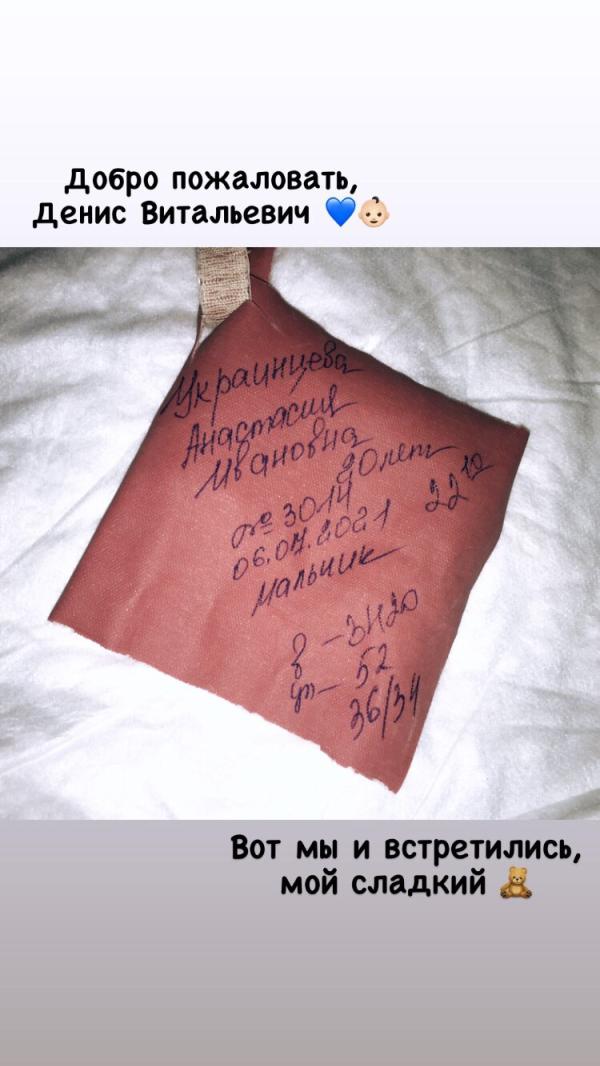 Добро пожаловать,
Денис Витальевич 💙👶🏻
Украинцева
Анастасия
Ивановна
20 лет
№ 3014 22 10
06.04.2021
мальчик
в – 3420
р – 52
36/34
Вот мы и встретились,
мой сладкий 🧸